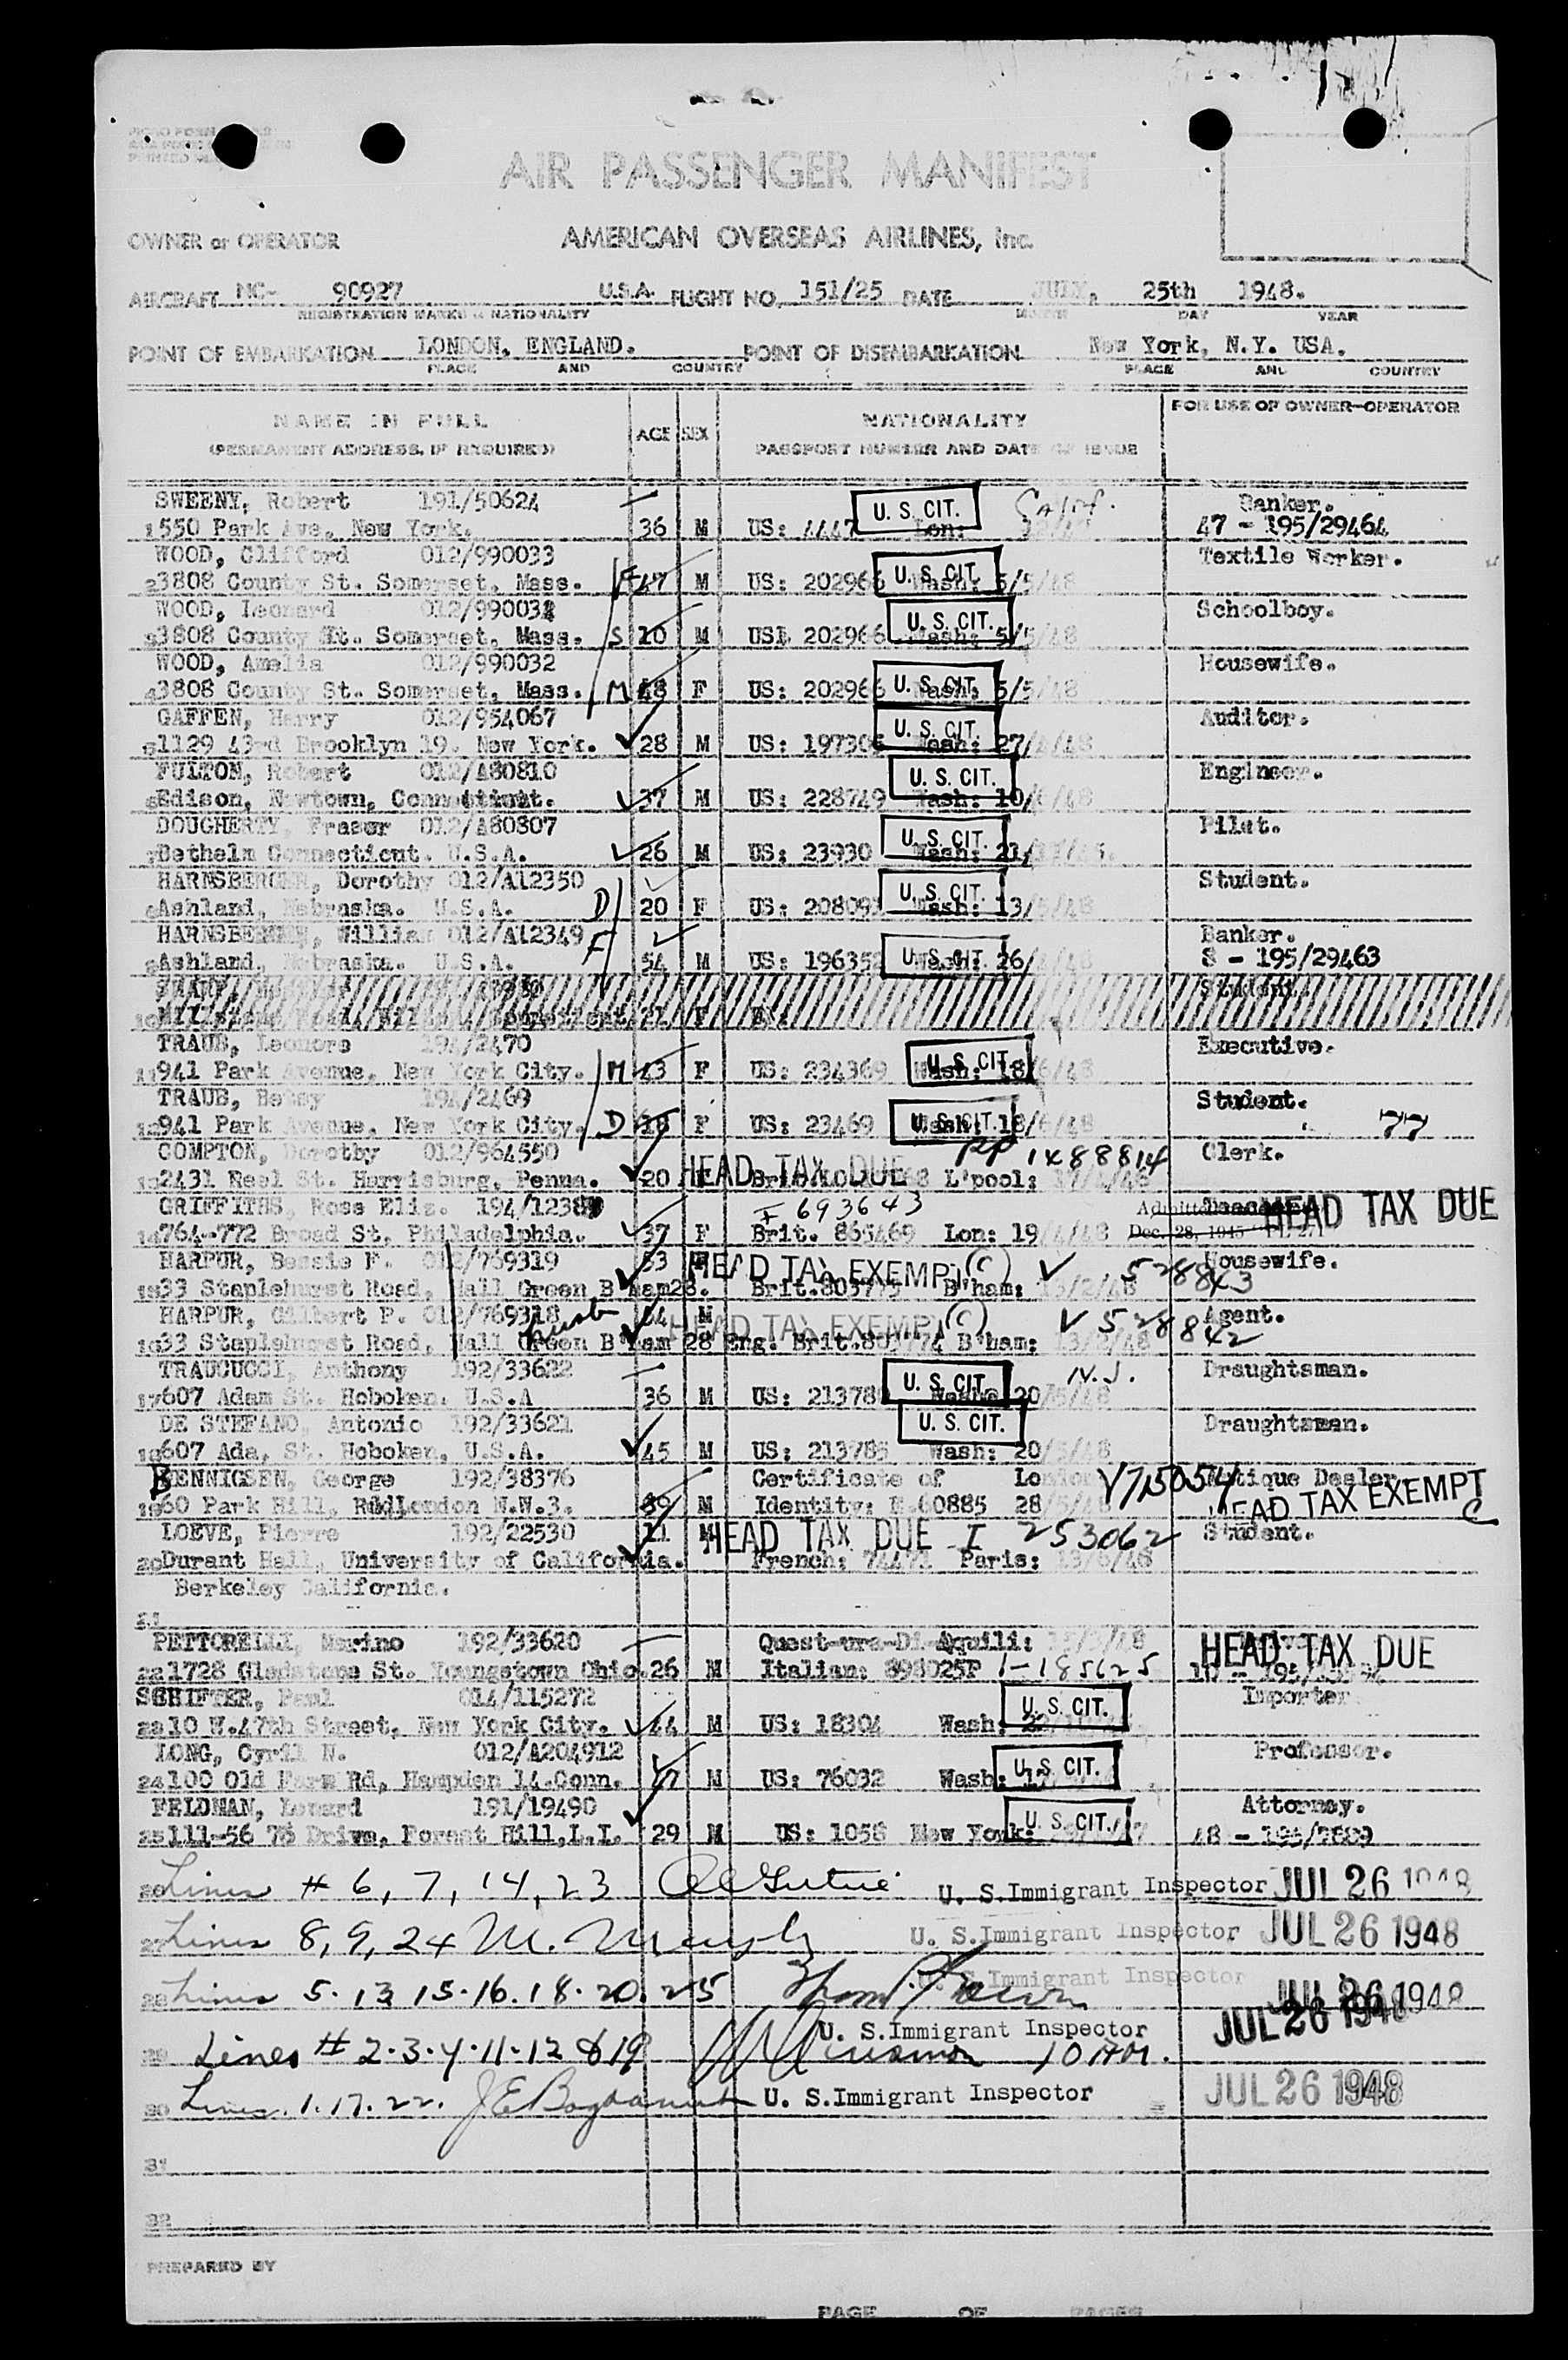 AIR PASSENGER MANIFEST
OWNER or OPERATOR AMERICAN OVERSEAS AIRLINES, Inc.
AIRCRAFT NC- 90927 U.S.A. FLIGHT NO. 151/25 DATE JULY, 25th 1948.
REGISTRATION MARKS & NATIONALITY MONTH DAY YEAR
POINT OF EMBARKATION LONDON, ENGLAND. POINT OF DISEMBARKATION New York, N.Y. USA.
PLACE AND COUNTRY PLACE AND COUNTRY
NAME IN FULL AGE SEX NATIONALITY FOR USE OF OWNER-OPERATOR
(PERMANENT ADDRESS, IF REQUIRED) PASSPORT NUMBER AND DATE OF ISSUE
SWEENY, Robert 191/50624 U. S. CIT. Calif. Banker.
1 550 Park Ave, New York. 36 M US: 4447 Lon: 47 - 195/29464
WOOD, Clifford 012/990033 U. S. CIT. Textile Worker.
2 3808 County St. Somerset, Mass. F 47 M US: 202966 Wash: 5/5/48
WOOD, Leonard 012/990031 U. S. CIT. Schoolboy.
3 3808 County St. Somerset, Mass. S 10 M US: 202966 Wash: 5/5/48
WOOD, Amelia 012/990032 Housewife.
4 3808 County St. Somerset, Mass. M 48 F US: 202966 U. S. CIT. Wash: 5/5/48
GAFFEN, Harry 012/954067 U. S. CIT. Auditor.
5 1129 43rd Brooklyn 19. New York. 28 M US: 197306 Wash: 27/4/48
FULTON, Robert 012/A80810 U. S. CIT. Engineer.
6 Edison, Newtown, Connecticut. 37 M US: 228749 Wash: 10/6/48
DOUGHERTY, Fraser 012/A80807 U. S. CIT. Pilot.
7 Bethelm Connecticut. U.S.A. 26 M US: 23930 Wash: 21/
HARNSBERGER, Dorothy 012/A12350 U. S. CIT. Student.
8 Ashland, Nebraska. U.S.A. D 20 F US: 208093 Wash: 13/5/48
HARNSBERGER, William 012/A12349 F Banker.
9 Ashland, Nebraska. U.S.A. 54 M US: 196358 U. S. CIT. Wash: 26/4/48 8 - 195/29463
Student.
10
TRAUB, Leonore 194/2470 Executive.
11 941 Park Avenue, New York City. M 43 F US: 234369 U. S. CIT. Wash: 18/6/48
TRAUB, Betsy 194/2469 Student.
12 941 Park Avenue, New York City. D 18 F US: 23469 U. S. CIT. Wash: 18/6/48 77
COMPTON, Dorothy 012/964550 PP 1488814 Clerk.
13 2431 Reel St. Harrisburg, Penna. 20 HEAD TAX DUE L'pool: 17/4/46
GRIFFITHS, Rose Eliz. 194/12389 I 693643 HEAD TAX DUE
14 764-772 Broad St, Philadelphia. 37 F Brit. 865469 Lon: 19/4/48 Dec. 28, 1945
HARPUR, Bessie F. 012/769319 53 HEAD TAX EXEMPT C 528843 Housewife.
15 33 Staplehurst Road, Hall Green B'ham 28. Brit. 803775 B'ham: 13/2/48
HARPUR, Gilbert P. 012/769318 husb 54 M HEAD TAX EXEMPT C V 528842 Agent.
16 33 Staplehurst Road, Hall Green B'ham 28 Eng. Brit. 803774 B'ham: 13/2/48
TRAUCUCCI, Anthony 192/33622 U. S. CIT. N.J. Draughtsman.
17 607 Adam St. Hoboken. U.S.A 36 M US: 21378 20/5/48
DE STEFANO, Antonio 192/33621 U. S. CIT. Draughtsman.
18 607 Ada, St. Hoboken, U.S.A. 45 M US: 213785 Wash: 20/5/48
BENNIGSEN, George 192/38376 Certificate of London V715054 Antique Dealer
19 60 Park Hill, Rd London N.W.3. 39 M Identity: 60885 28/5/48 HEAD TAX EXEMPT C
LOEVE, Pierre 192/22530 21 M HEAD TAX DUE I 253062 Student.
20 Durant Hall, University of California. French: 74471 Paris: 13/6/48
Berkeley California.
21
PETTORELLI, Marino 192/33620 Quest-ura-Di-Aquili: HEAD TAX DUE
22 1728 Gladstone St. Youngstown Ohio. 26 M Italian: 898025P I-185625
SCHIFTER, Paul 014/115272 U. S. CIT. Importer
23 10 W.47th Street, New York City. 44 M US: 18304 Wash:
LONG, Cyril N. 012/A204912 U. S. CIT. Professor.
24 100 Old Farm Rd, Hampden 14.Conn. 47 M US: 76032 Wash:
FELDMAN, Leonard 191/19490 U. S. CIT. Attorney.
25 111-56 76 Drive, Forest Hill, L.I. 29 M US: 1058 New York:
26 Lines # 6, 7, 14, 23 U. S. Immigrant Inspector JUL 26 1948
27 Lines 8, 9, 24 U. S. Immigrant Inspector JUL 26 1948
28 Lines 5. 13 15. 16. 18. 20. 25 U. S. Immigrant Inspector JUL 26 1948
U. S. Immigrant Inspector JUL 26 1948
29 Lines # 2. 3. 4. 11. 12 & 19 10 AM.
30 Lines. 1. 17. 22. U. S. Immigrant Inspector JUL 26 1948
31
32
PREPARED BY
PAGE OF PAGES